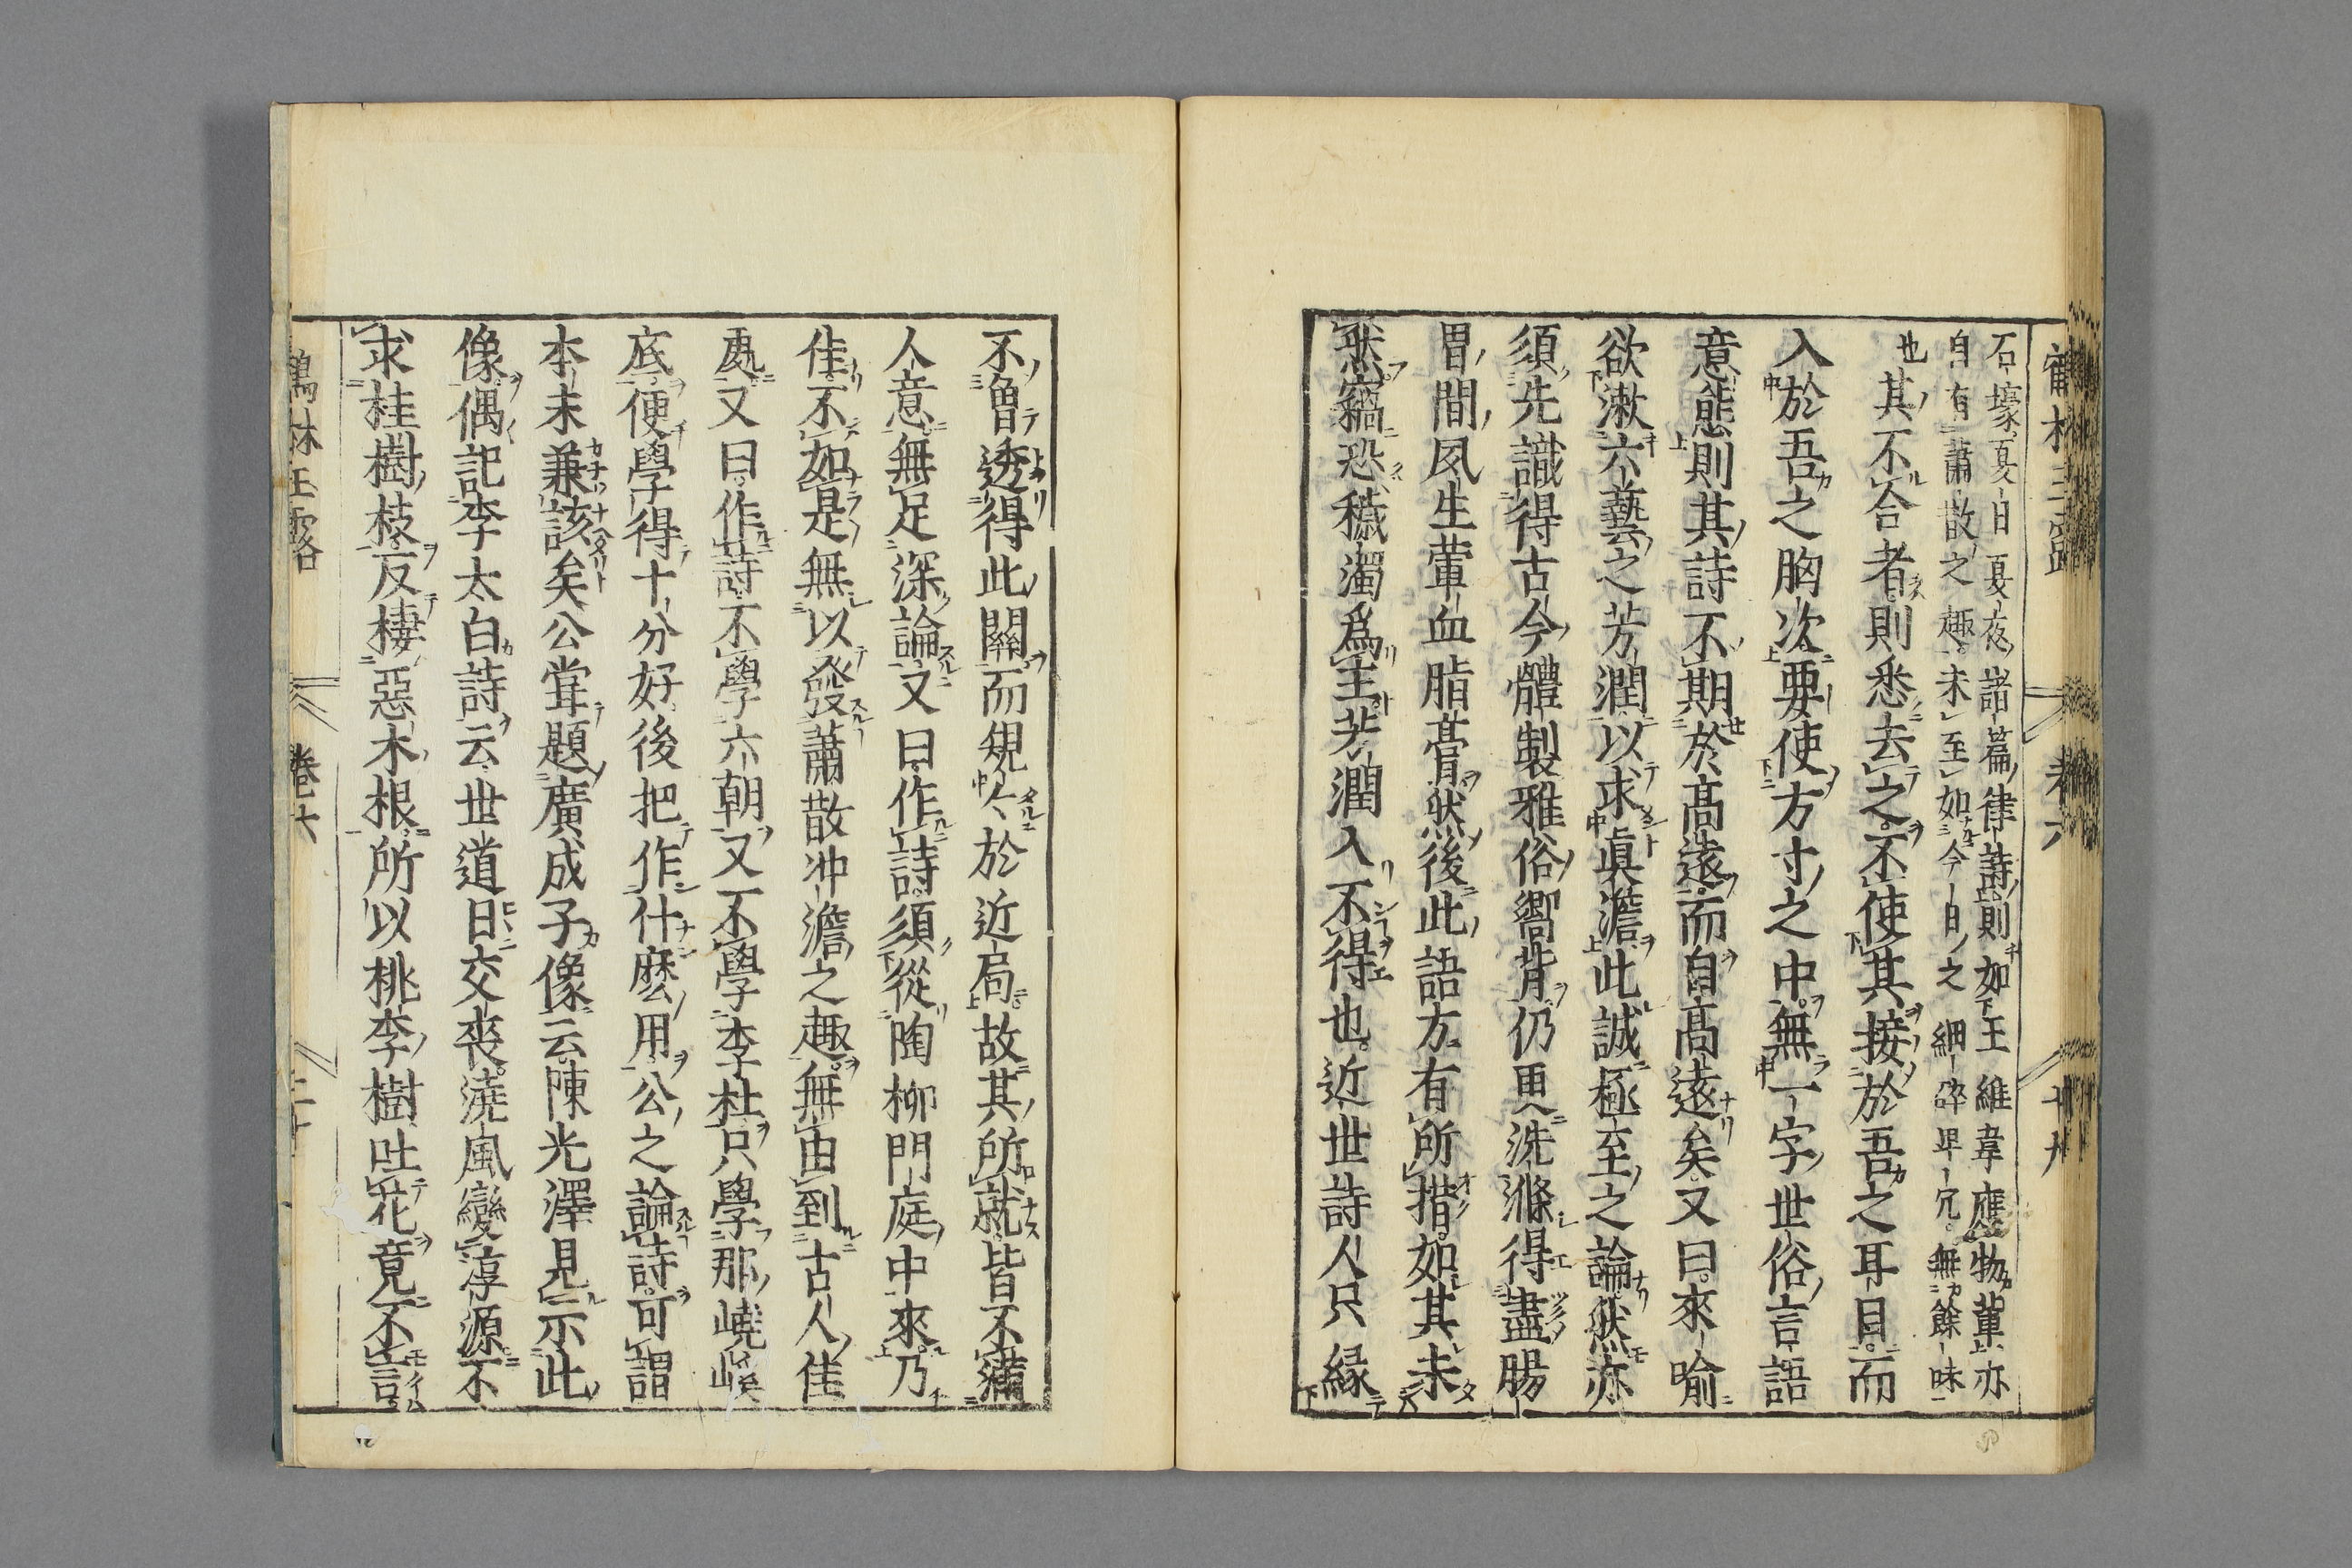 石壕夏日夏夜諸篇律詩則如王維韋應物輩亦
自有蕭散之趣未至如今日之細碎卑冗無餘味
也其不合者則悉去之不使其接於吾之耳目而
入於吾之胸次要使方寸之中無一字世俗言語
意態則其詩不期於髙遠而自髙遠矣又曰來喻
欲漱六藝之芳潤以求眞澹此誠極至之論然亦
須先識得古今體製雅俗嚮背仍更洗滌得盡腸
胃間夙生葷血脂膏然後此語方有所措如其未
然竊恐穢濁爲主芳潤入不得也近世詩人只縁
不曽透得此關而規々於近局故其所就皆不滿
人意無足深論又曰作詩須從陶柳門庭中來乃
佳不如是無以發蕭散冲澹之趣無由到古人佳
處又曰作詩不學六朝又不學李杜只學那嶢崎
底便學得十分好後把作什麽用公之論詩可謂
本末兼該矣公甞題廣成子像云陳光澤見示此
像偶記李太白詩云世道日交喪澆風變淳源不
求桂樹枝反棲惡木根所以桃李樹吐花竟不言
鶴林玉露 卷六